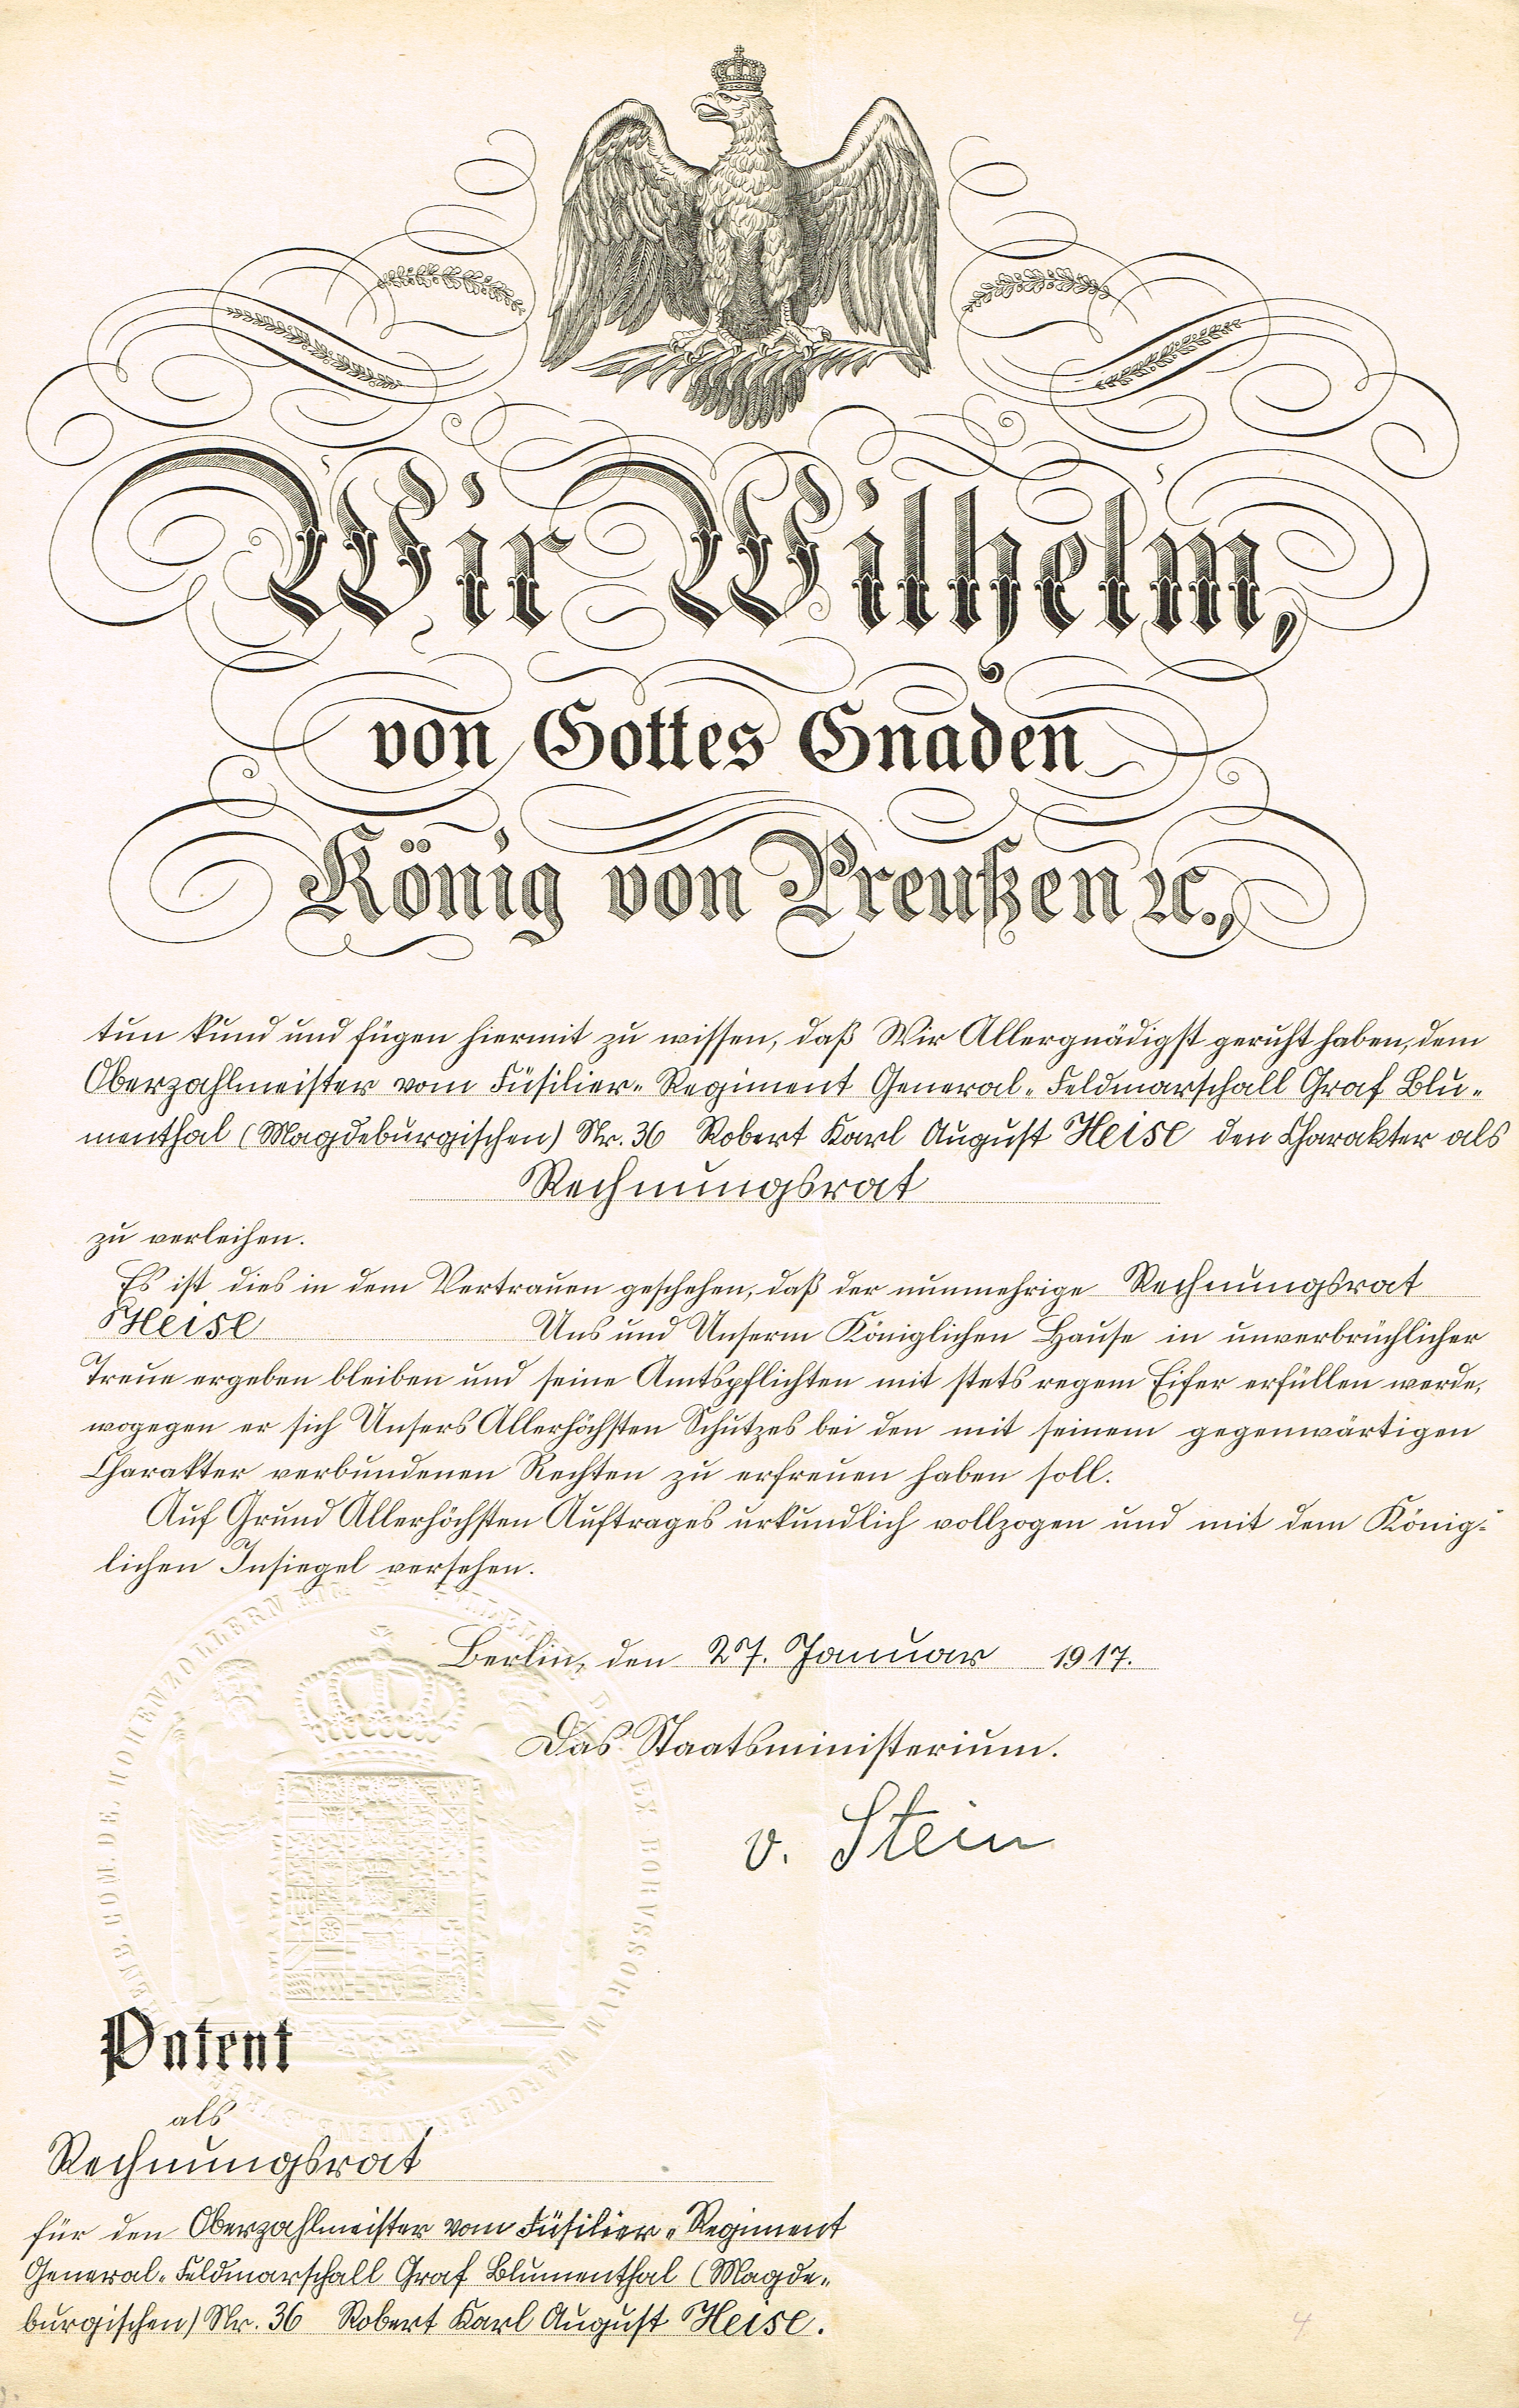 Wir Wilhelm,
von Gottes Gnaden
König von Preußen ꝛc.,
tun kund und fügen hiermit zu wissen, daß Wir Allergnädigst geruht haben, dem
Oberzahlmeister vom Füsilier-Regiment General-Feldmarschall Graf Blu-
menthal (Magdeburgischen) Nr. 36 Robert Karl August Heise den Charakter als
Rechnungsrat
zu verleihen.
Es ist dies in dem Vertrauen geschehen, daß der nunmehrige Rechnungsrat
Heise Uns und Unserm Königlichen Hause in unverbrüchlicher
Treue ergeben bleiben und seine Amtspflichten mit stets regem Eifer erfüllen werde,
wogegen er sich Unsers Allerhöchsten Schutzes bei den mit seinem gegenwärtigen
Charakter verbundenen Rechten zu erfreuen haben soll.
Auf Grund Allerhöchsten Auftrages urkundlich vollzogen und mit dem König-
lichen Insiegel versehen.
Berlin, den 27. Januar 1917.
Das Staatsministerium.
v. Stein
Patent
als
Rechnungsrat
für den Oberzahlmeister vom Füsilier-Regiment
General-Feldmarschall Graf Blumenthal (Magde-
burgischen) Nr. 36 Robert Karl August Heise.
4